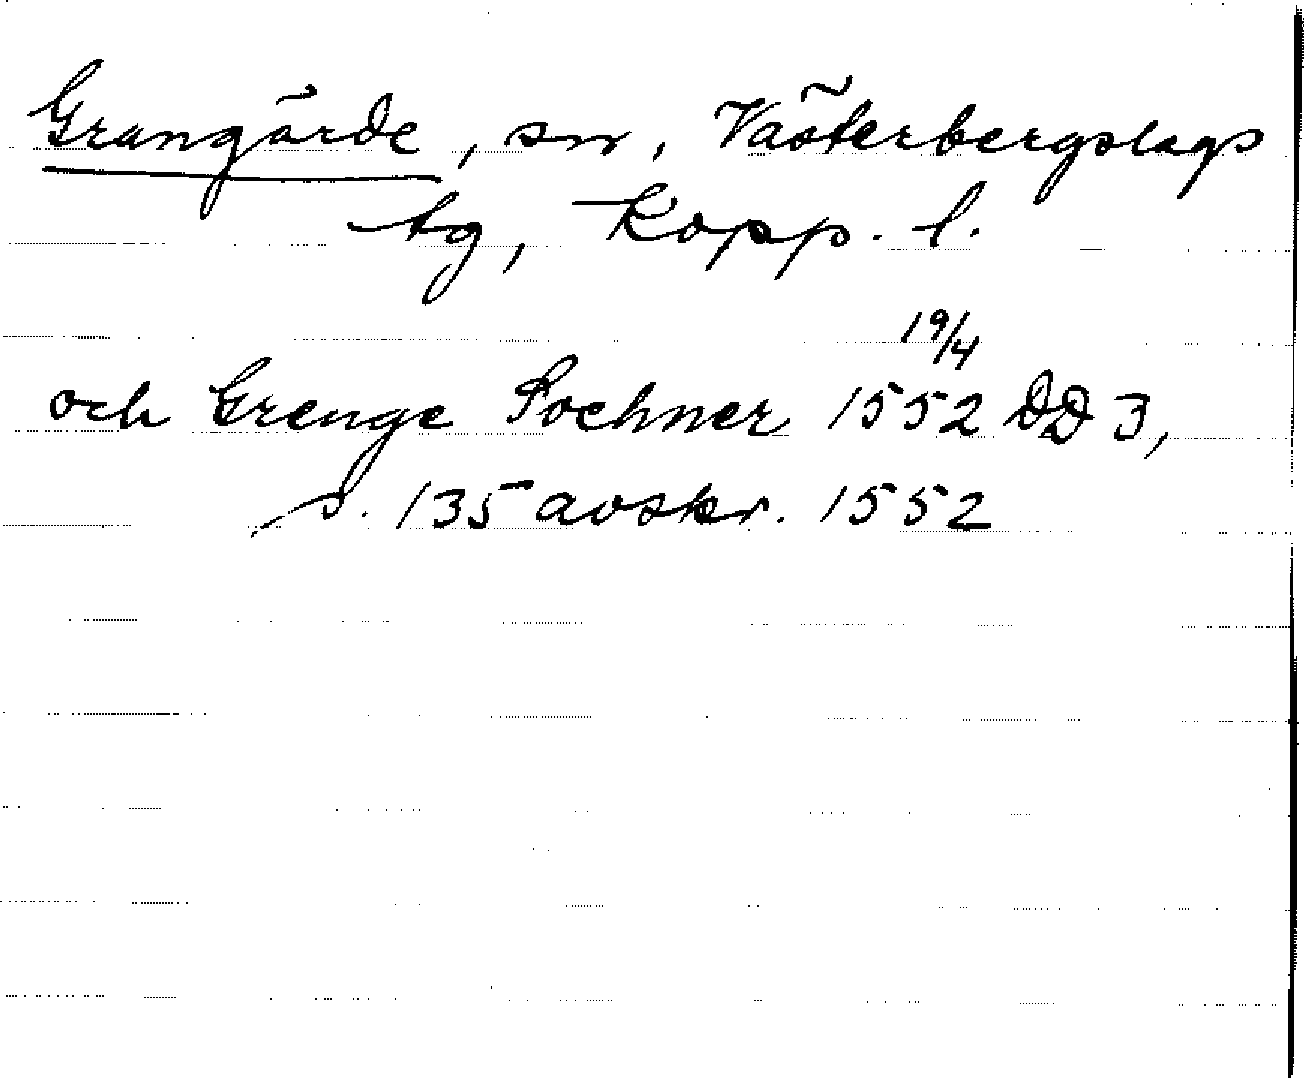 Grangärde, sn, Västerbergslags
tg, Kopp. l.
19/4
och Grenge Sochner 1552 DD 3,
s. 135 avskr. 1552